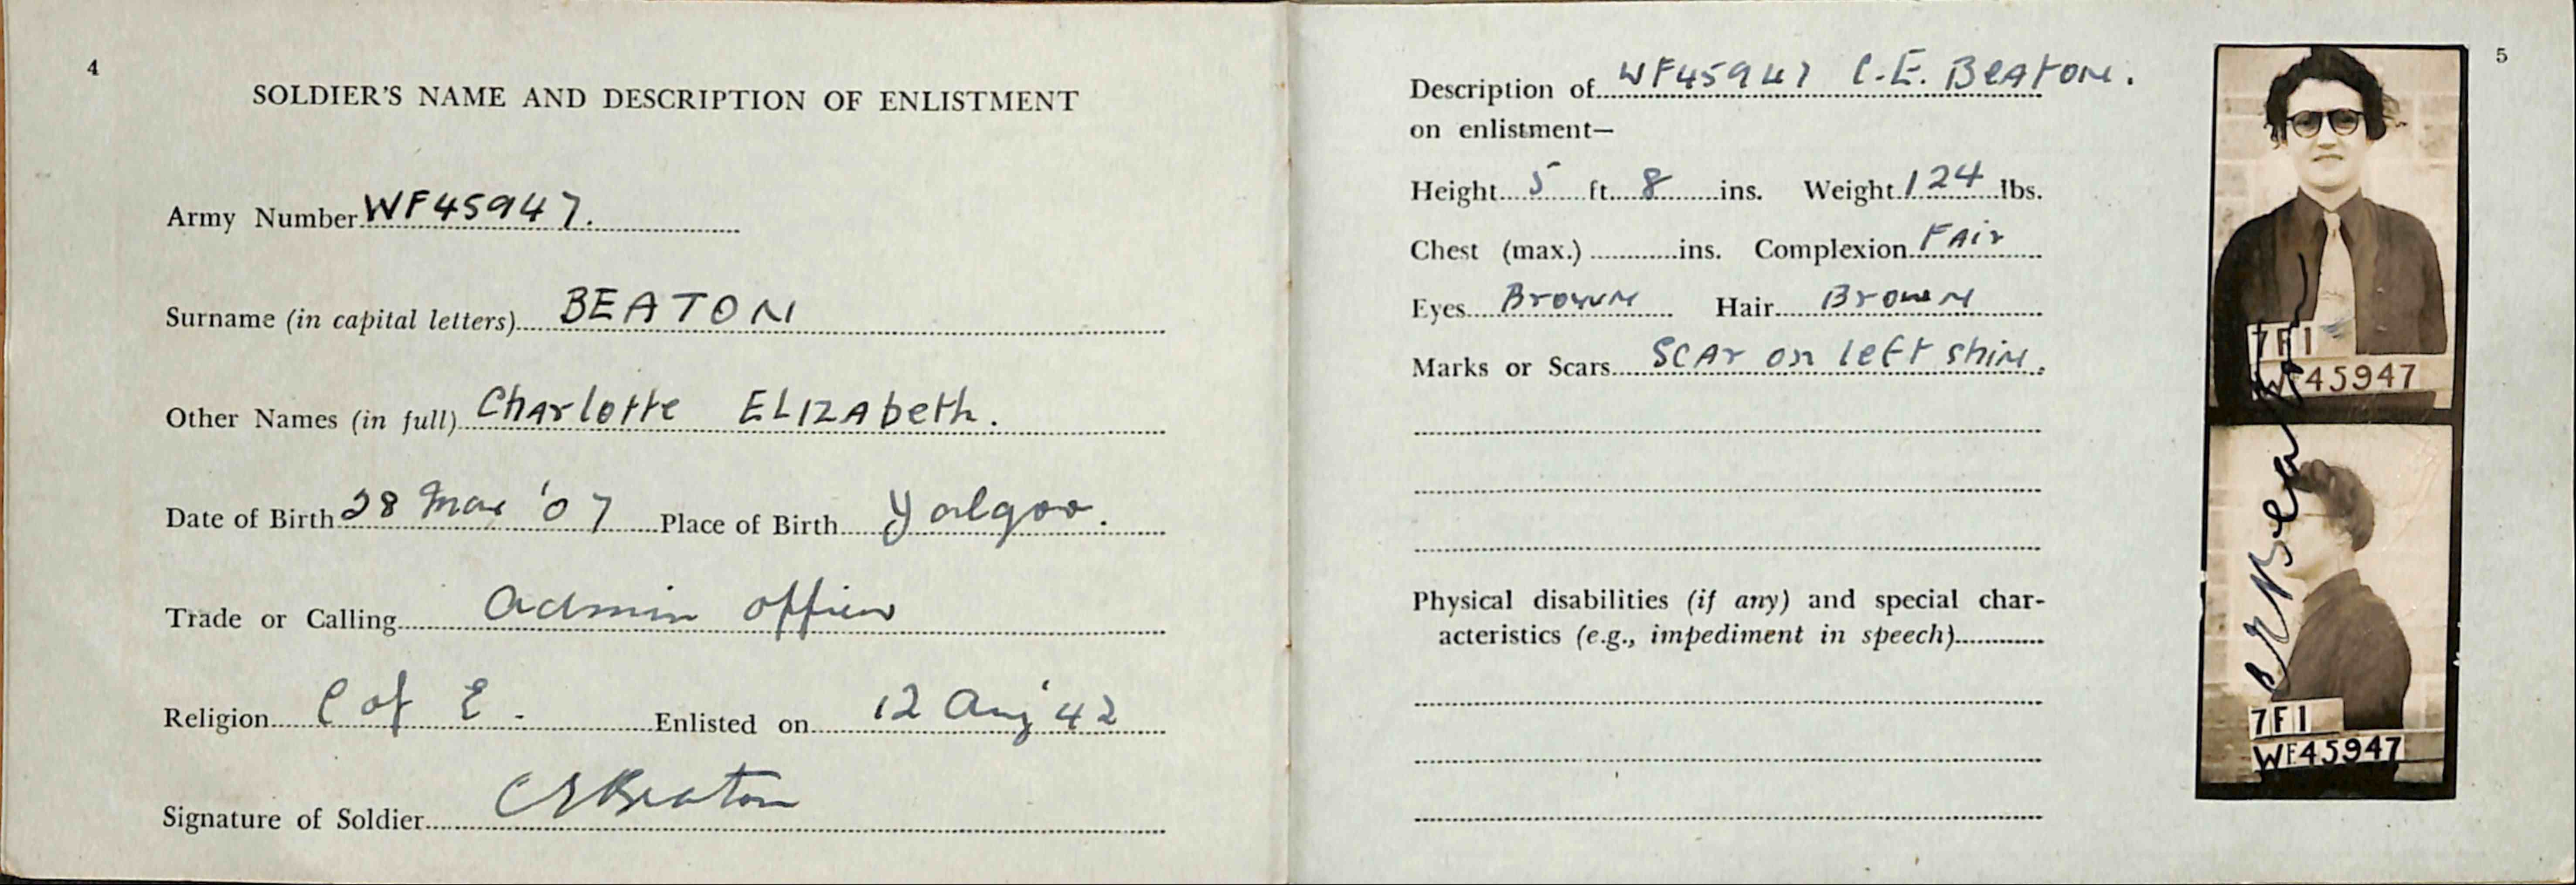 4
SOLDIER'S NAME AND DESCRIPTION OF ENLISTMENT
Army Number WF45947.
Surname (in capital letters) BEATON
Other Names (in full) Charlotte ELIZAbeth.
Date of Birth 28 Mar '07 Place of Birth Yalgoo.
Trade or Calling Admin officer
Religion C of E. Enlisted on 12 Aug '42
Signature of Soldier C E Beaton
5
Description of WF45947 C.E. BEATON.
on enlistment—
Height 5 ft. 8 ins. Weight 124 lbs.
Chest (max.) ins. Complexion FAir
Eyes Brown Hair Brown
Marks or Scars SCAr on left shin.
Physical disabilities (if any) and special char-
acteristics (e.g., impediment in speech)
7F1
WF45947
C E Beaton
7F1
WF45947